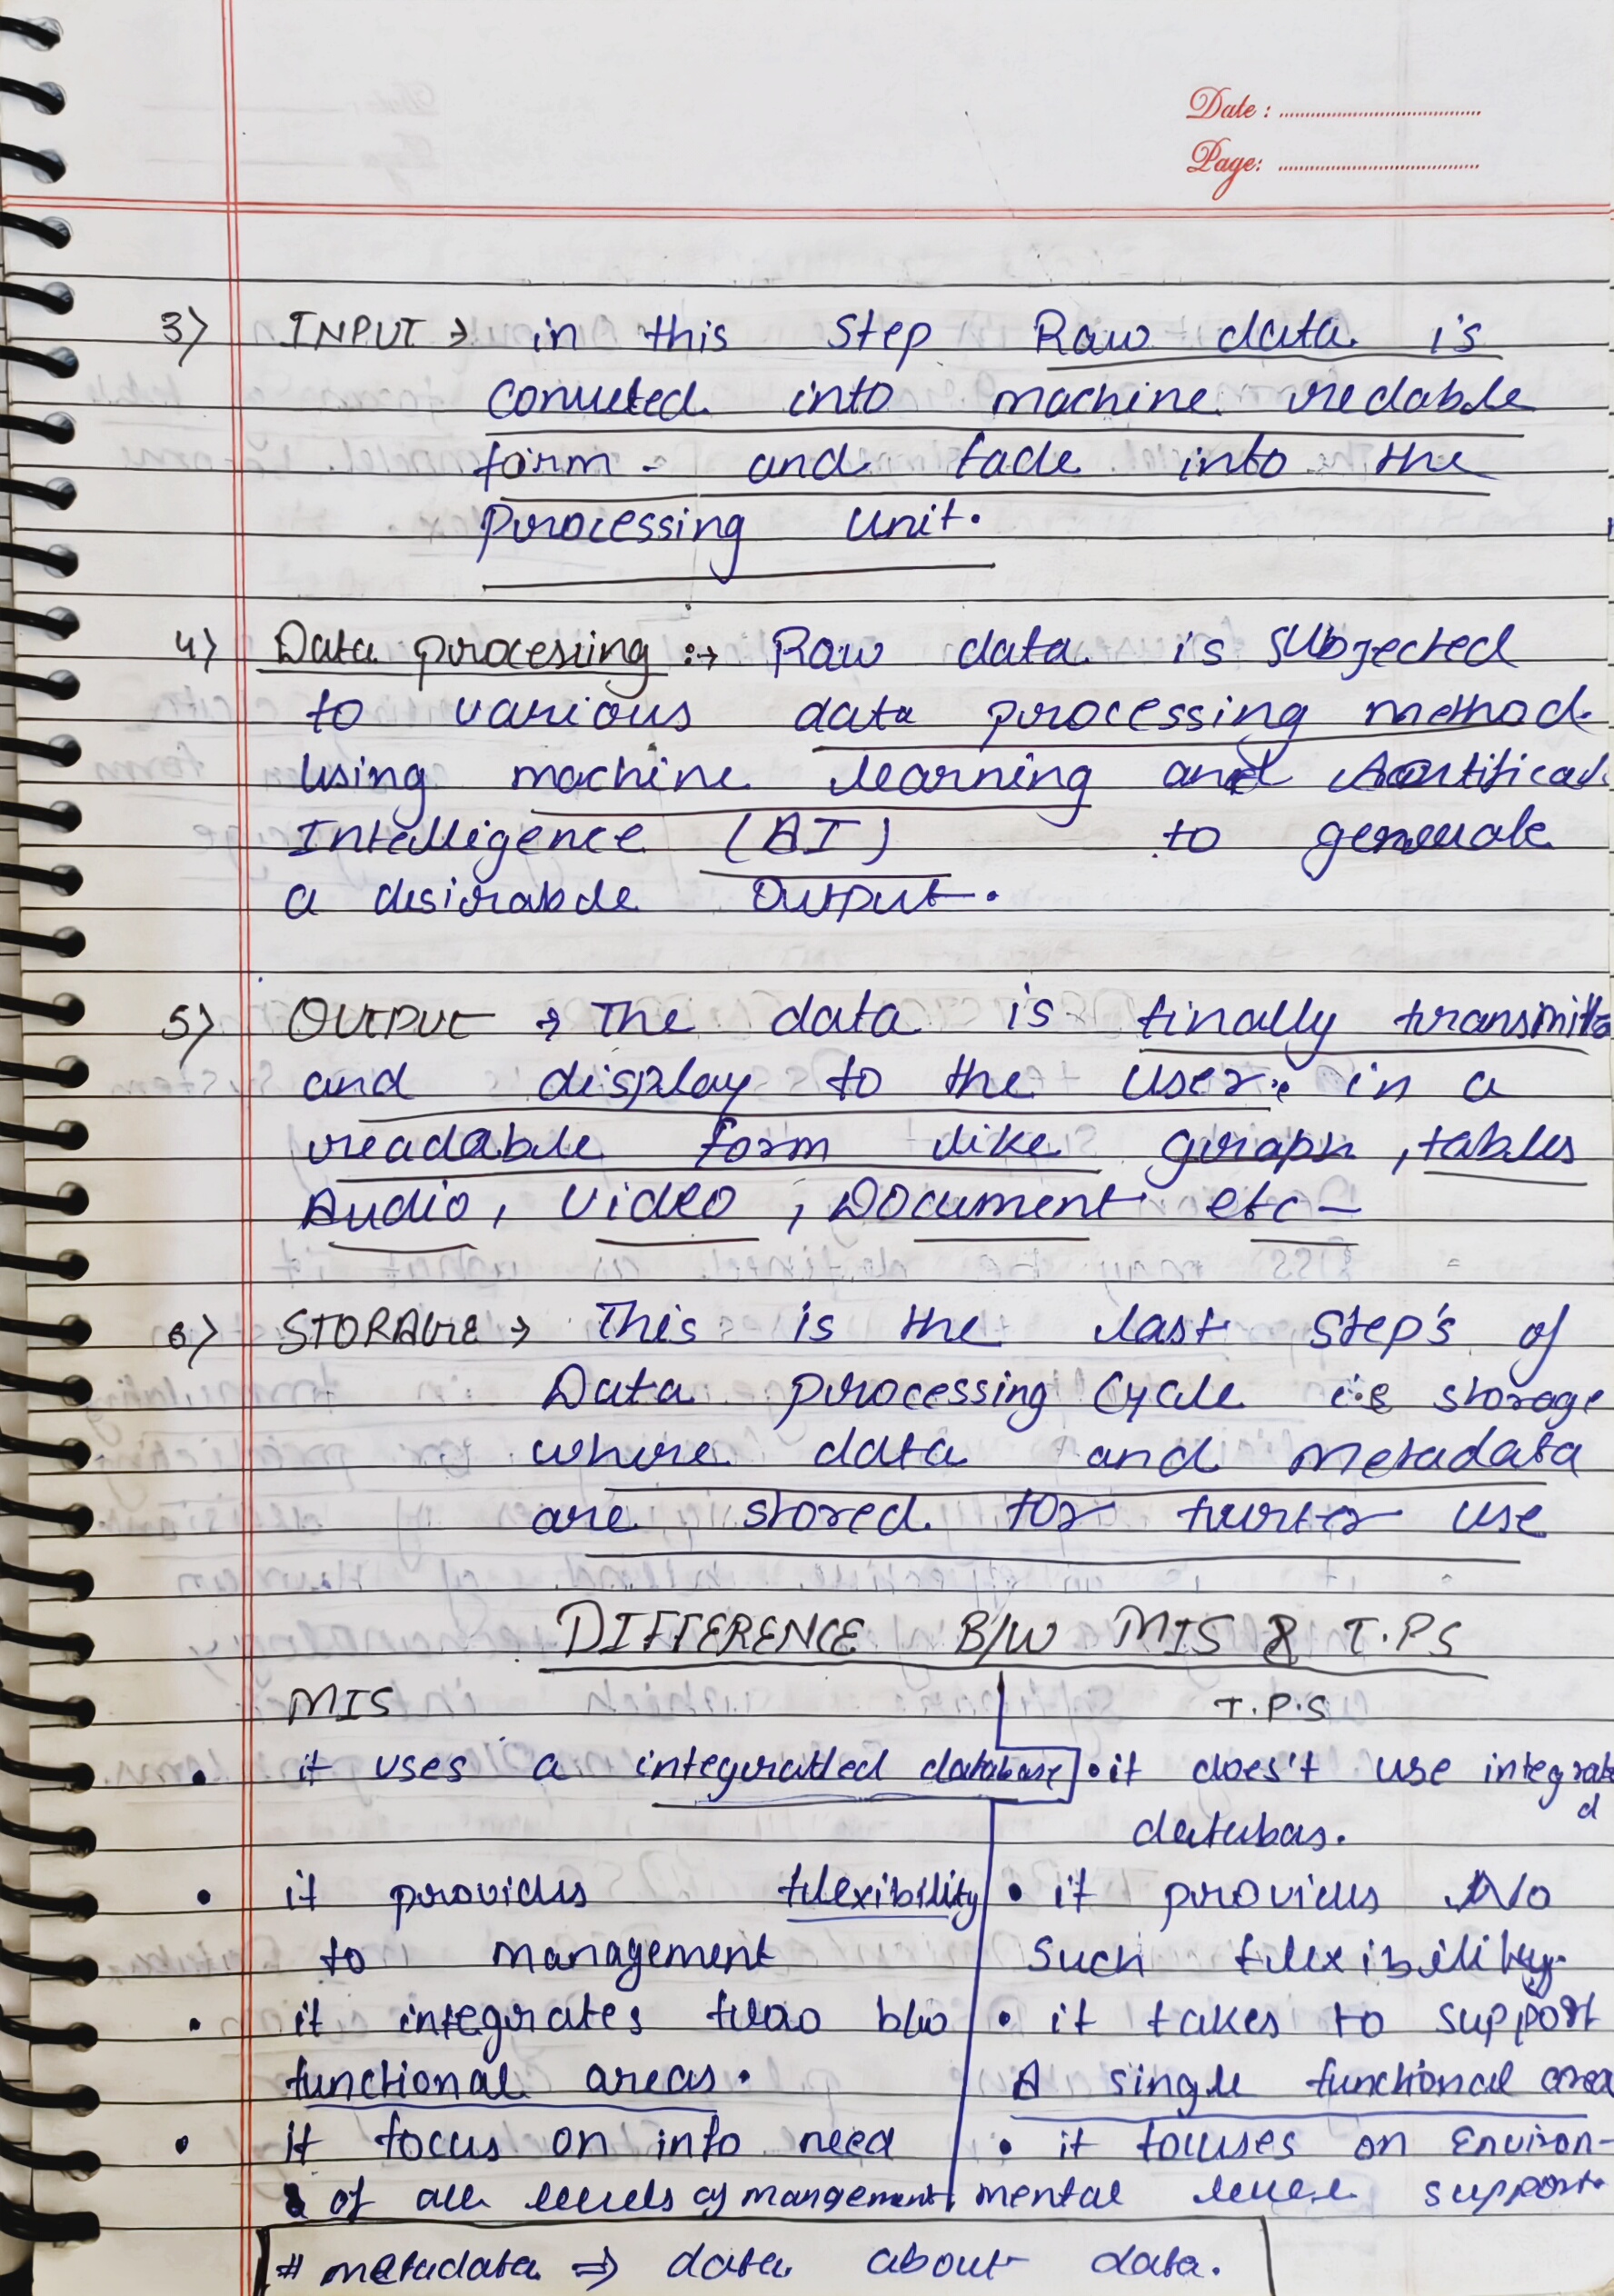 Date :
Page:
3) INPUT → in this step Raw data is
conveted into machine redable
form - and fade into the
processing unit.
4) Data processing :→ Raw data is subjected
to various data processing method
using machine learning and Aartifical
Intelligence (AI) to generate
a desirable output.
5) OUTPUT → The data is finally transmits
and display to the user. in a
readable form like graph , tables
Audio, Video , Document etc -
6) STORAGE → This is the last step's of
Data processing cycle i.e storage
where data and metadata
are stored for furter use
DIFFERENCE B/W MIS & T.PS
MIS T.P.S
• it uses a integratled database • it does't use integrate
d
databas.
• it provides flexibility • it provides No
to management such flexibility.
• it integrates flao b/w • it takes to support
functional areas. A single functional area
• it focus on info need • it focuses on Environ-
of all levels of mangement mental level support.
# metadata ⇒ data about data.